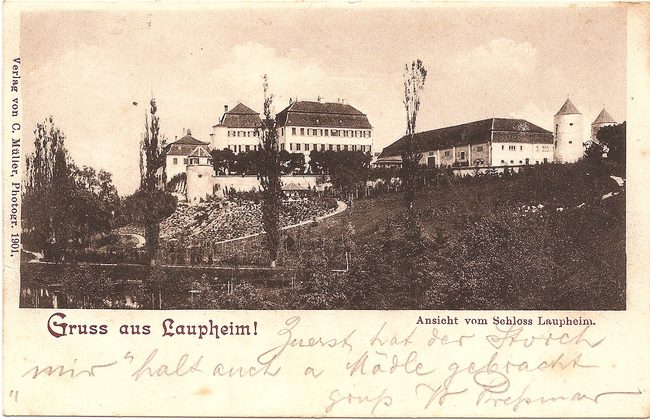 Verlag von C. Müller, Photogr. 1901.
Gruss aus Laupheim!
Ansicht vom Schloss Laupheim.
Zuerst hat der Storch
mir "halt auch a Mädle gebracht
gruß